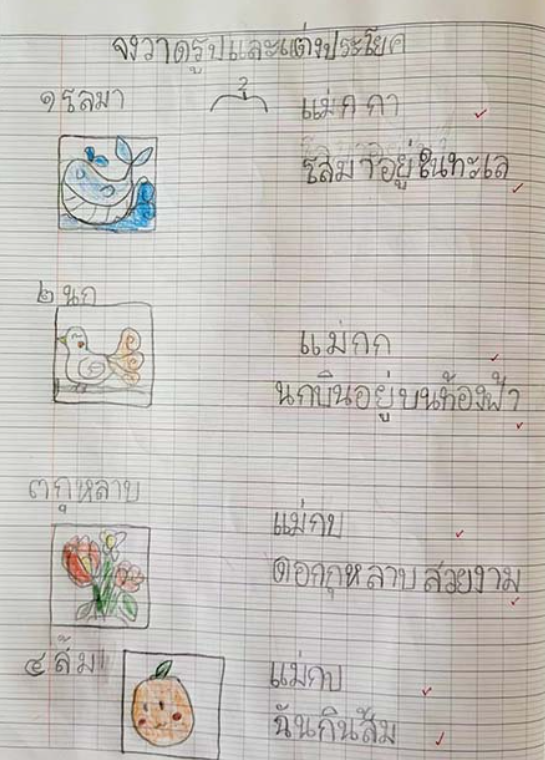 จงวาดรูปและแต่งประโยค
๑ โลมา
แม่ก กา
โลมาอยู่ในทะเล
๒ นก
แม่กก
นกบินอยู่บนท้องฟ้า
๓ กุหลาบ
แม่กบ
ดอกกุหลาบสวยงาม
๔ ส้ม
แม่กบ
ฉันกินส้ม